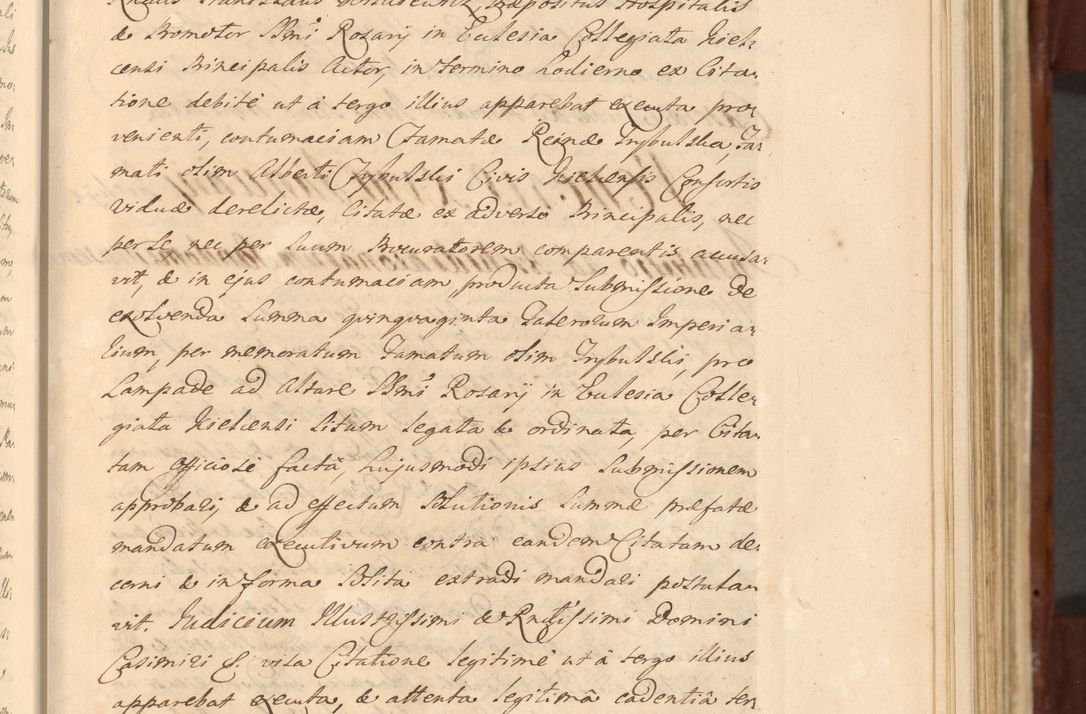 & Promotor SSmi Rosarij in Eccłesia Collegiata Kiel-
censi Principalis Actor, in termino hodierno ex Cita-
tione debitè ut à tergo illius apparebat executa pro-
venienti, contumaciam Famatæ Reginæ Trybulska, Fa-
mati olim Alberti Trybulski Civis Kielcensis Consortis
viduæ derelictæ, Citatæ ex adverso Principalis, nec
per se nec per suum Procuratorem comparentis accusa-
vit, & in ejus contumaciam producta Submissione de
exolvenda Summa quinquaginta Talerorum Imperia-
lium, per memoratum Famatum olim Trybulski pro
Lampade ad Altare SSmi Rosarij in Ecclesia Colle-
giata Kielcensi Situm legata & ordinata, per Cita-
tam officiosè factâ, hujusmodi ipsius Submissionem
approbari, & ad effectum Solutionis Summæ præfatæ
mandatum executivum contra eandem Citatam de-
cerni & in forma Solita extradi mandari postula-
vit. Judicium Illustrissimi & Rndissimi Domini
Casimiri &. visa Citatione legitimè ut à tergo illius
apparebat executa, & attenta legitimâ cadentiâ ter-